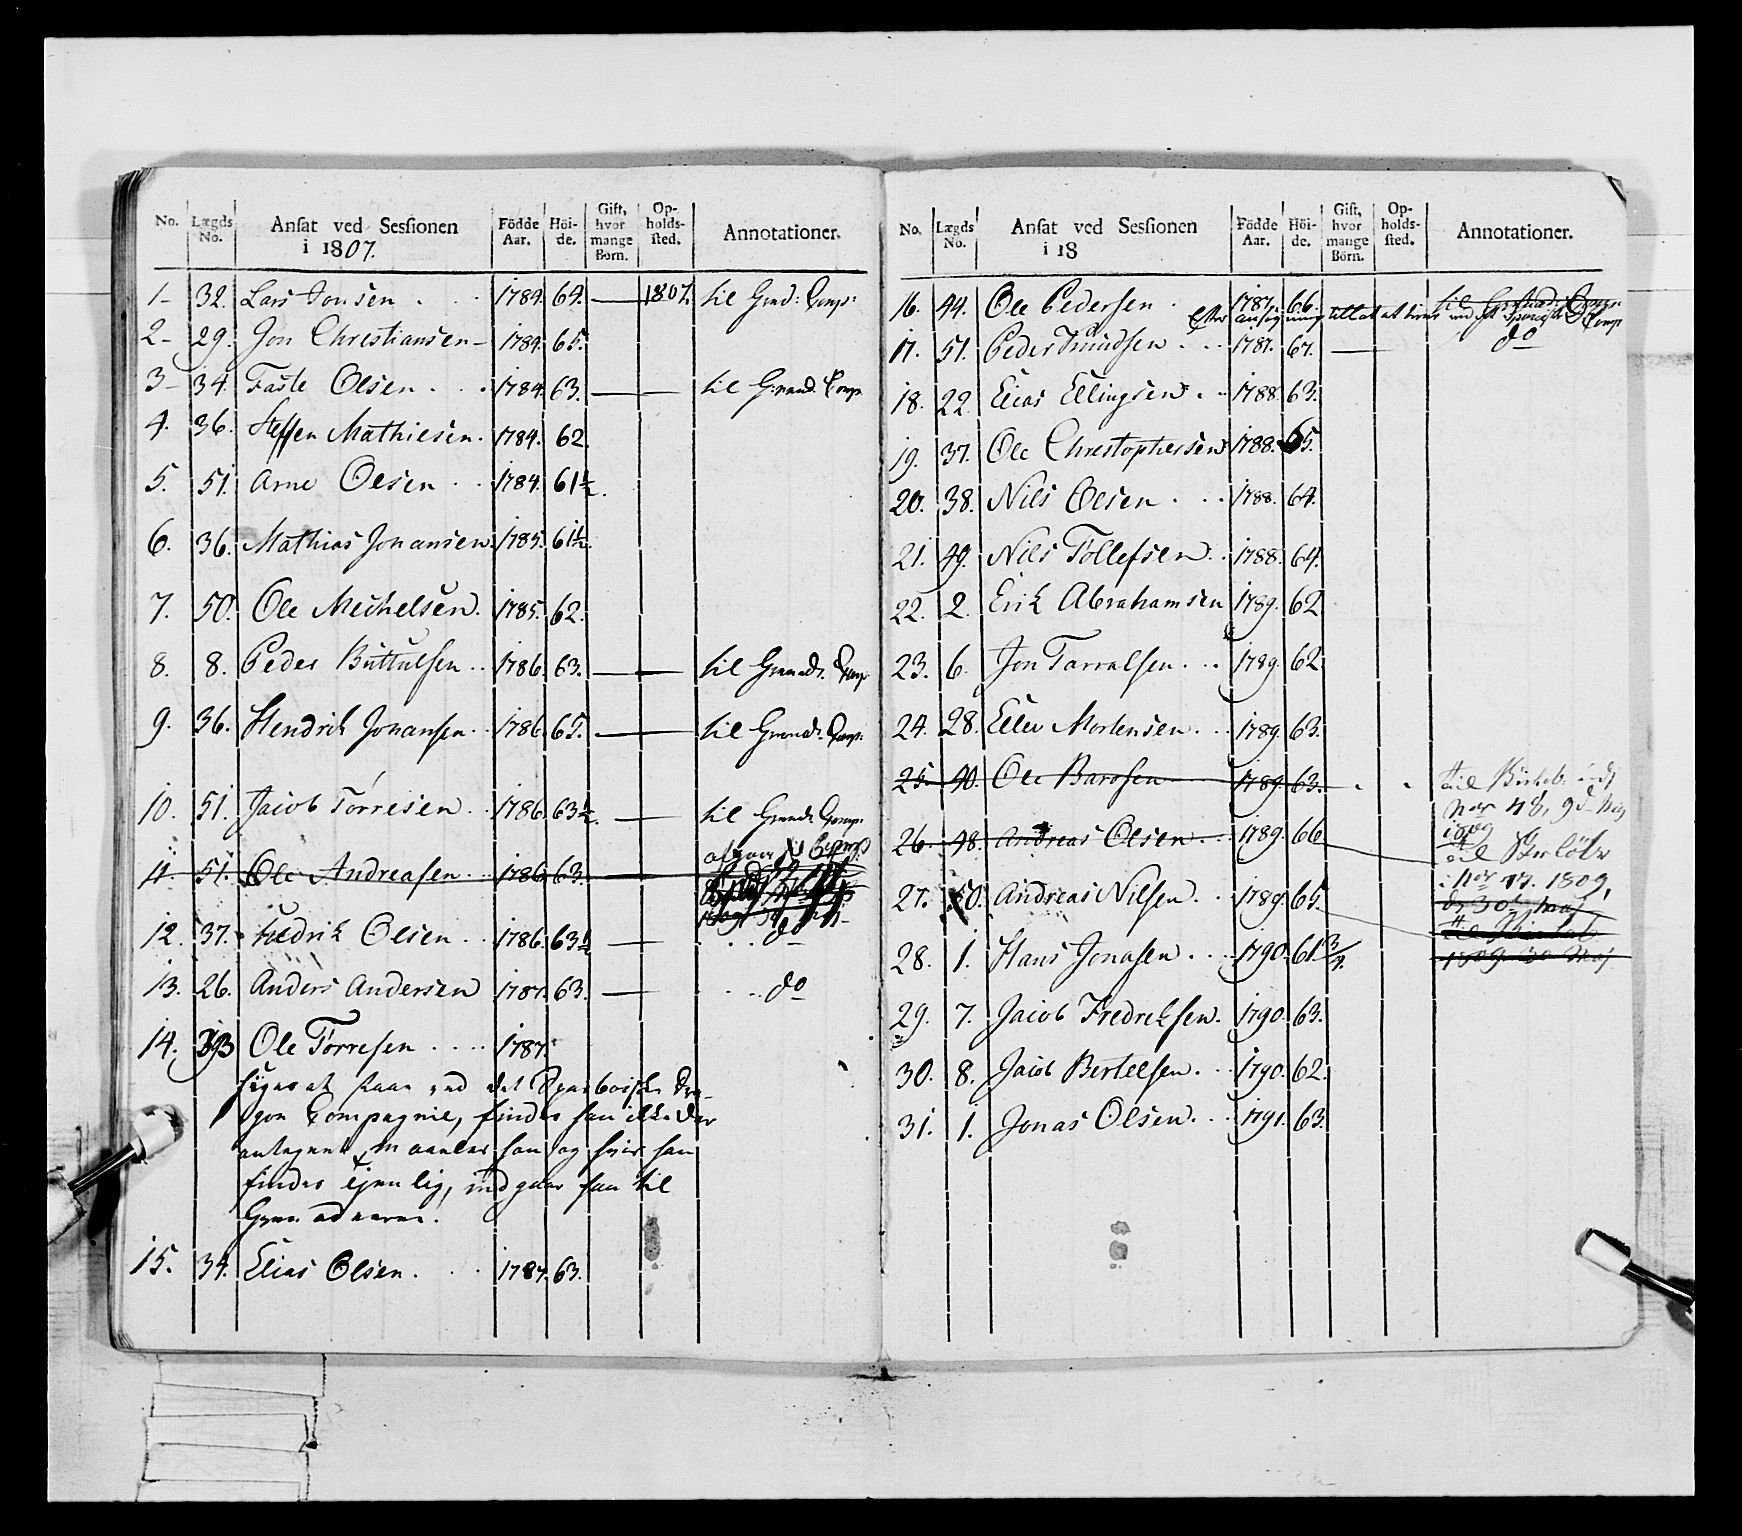 No. Lægds No. Ansat ved Sessionen i 1807. Födde Aar. Höide. Gift, hvor mange Börn. Opholdssted. Annotationer.
1- 32. Lars Jonsen . . 1784. 64. — 1807. til Gred: Comp:
2- 29. Jon Christiansen - 1784. 65.
3- 34. Faste Olsen . . 1784. 63. — til Grenad. Comp.
4. 36. Steffen Mathiesen. 1784. 62.
5. 51. Arne Olsen . . 1784. 61½.
6. 36. Mathias Jonansen. 1785. 61½.
7. 50. Ole Michelsen. 1785. 62.
8. 8. Peder Buttulsen . . 1786. 63. — til Grenadr. Comp.
9. 36. Hendrik Johansen . . 1786. 65. — til Grenadr. Comp:
10. 51. Jacob Torresen . . 1786. 63½. — til Grenadr. Comp:
11. 51. Ole Andreasen . . 1786. 63.
12. 37. Fredrik Olsen . . 1786. 63½ — . . do
13. 26. Anders Andersen 1787. 63. — . . do
14. Ole Torresen . . . . 1787.
siges at staae ved det Dra-
gon Compagnie, findes han ikke der
antagen, maales han og hvis han
findes tjenlig, indgaar han til
15. 34. Elias Olsen . . . 1787. 63.
No. Lægds No. Ansat ved Sessionen i 18 Födde Aar. Höide. Gift, hvor mange Börn. Opholdssted. Annotationer.
16. 44. Ole Pedersen . 1787. 66.
17. 51. Peder Knudsen . . . 1787. 67. — do
18. 22. Elias Ellingsen . . 1788. 63.
19. 37. Ole Christophersen 1788. 65.
20. 38. Nils Olsen . . . 1788. 64.
21. 49. Nils Tollefsen . . 1788. 64.
22. 2. Erik Abrahamsen 1789. 62.
23. 6. Jon Tarralsen . . . 1789. 62.
24. 28. Ellev Mortensen . . . 1789. 63.
25. 40. Ole Barosen 1789. 63. til
1809
26. 48. Andreas Olsen . . 1789. 66. til
27. 50. Andreas Nilsen . . 1789. 65. 1809,
28. 1. Hans Jonasen . . . 1790. 61¾.
29. 7. Jacob Fredriksen. 1790. 63.
30. 8. Jacob Bertelsen . . 1790. 62.
31. 1. Jonas Olsen . . . 1791. 63.